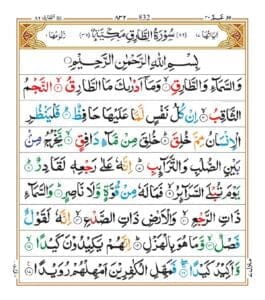 سُوْرَةُ الطَّارِقِ مَكِّيَّةٌ
بِسْمِ اللّٰهِ الرَّحْمٰنِ الرَّحِيْمِ
وَالسَّمَآءِ وَالطَّارِقِ ۙ وَمَاۤ اَدْرٰىكَ مَا الطَّارِقُ ۙ النَّجْمُ
الثَّاقِبُ ۙ اِنْ كُلُّ نَفْسٍ لَّمَّا عَلَيْهَا حَافِظٌ ؕ فَلْيَنْظُرِ
الْاِنْسَانُ مِمَّ خُلِقَ ؕ خُلِقَ مِنْ مَّآءٍ دَافِقٍ ۙ يَّخْرُجُ مِنْۢ
بَيْنِ الصُّلْبِ وَالتَّرَآئِبِ ؕ اِنَّهٗ عَلٰى رَجْعِهٖ لَقَادِرٌ ؕ
يَوْمَ تُبْلَى السَّرَآئِرُ ۙ فَمَا لَهٗ مِنْ قُوَّةٍ وَّلَا نَاصِرٍ ؕ وَالسَّمَآءِ
ذَاتِ الرَّجْعِ ۙ وَالْاَرْضِ ذَاتِ الصَّدْعِ ۙ اِنَّهٗ لَقَوْلٌ
فَصْلٌ ۙ وَّمَا هُوَ بِالْهَزْلِ ؕ اِنَّهُمْ يَكِيْدُوْنَ كَيْدًا ۙ
وَّاَكِيْدُ كَيْدًا ۚ فَمَهِّلِ الْكٰفِرِيْنَ اَمْهِلْهُمْ رُوَيْدًا